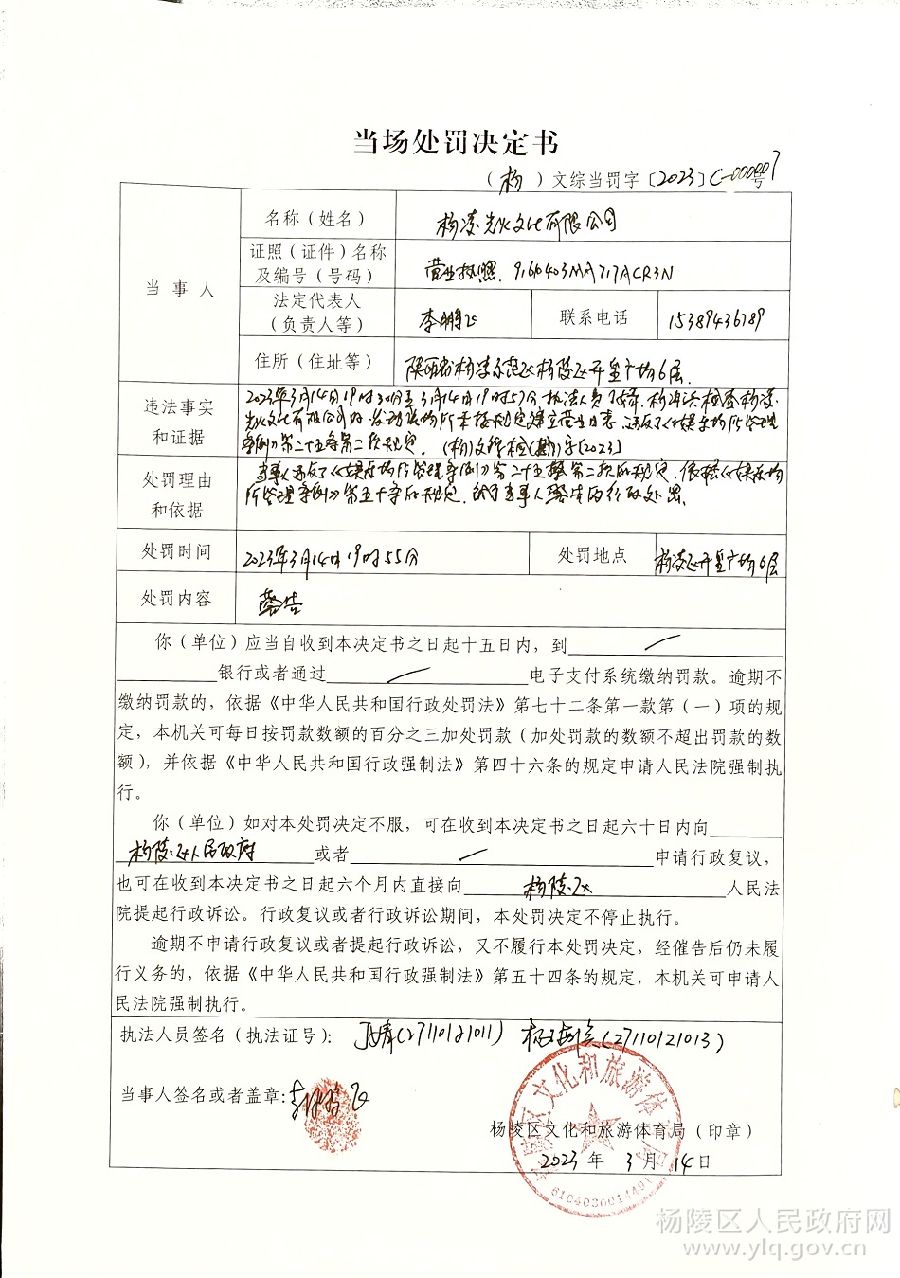 当场处罚决定书
（杨）文综当罚字〔2023〕C-000007号
当事人
名称（姓名）
杨凌 文化有限公司
证照（证件）名称
及编号（号码）
营业执照
法定代表人
（负责人等）
李鹏飞
联系电话
15389436789
住所（住址等）
陕西省杨凌示范区杨陵区开 广场6层
违法事实
和证据
2023年3月14日19时30分至3月14日19时57分执法人员 检查杨凌
文化有限公司 未按规定建立营业日志 违反了《娱乐场所管理
条例》第二十五条第二款规定
处罚理由
和依据
当事人违反了《娱乐场所管理条例》第二十五条第二款的规定，依据《娱乐场
所管理条例》第五十条的规定，给予当事人警告的行政处罚
处罚时间
2023年3月14日19时55分
处罚地点
杨凌区开 广场6层
处罚内容
警告
你（单位）应当自收到本决定书之日起十五日内，到
银行或者通过 电子支付系统缴纳罚款。逾期不
缴纳罚款的，依据《中华人民共和国行政处罚法》第七十二条第一款第（一）项的规
定，本机关可每日按罚款数额的百分之三加处罚款（加处罚款的数额不超出罚款的数
额），并依据《中华人民共和国行政强制法》第四十六条的规定申请人民法院强制执
行。
你（单位）如对本处罚决定不服，可在收到本决定书之日起六十日内向
杨陵区人民政府 或者 申请行政复议，
也可在收到本决定书之日起六个月内直接向 杨陵区 人民法
院提起行政诉讼。行政复议或者行政诉讼期间，本处罚决定不停止执行。
逾期不申请行政复议或者提起行政诉讼，又不履行本处罚决定，经催告后仍未履
行义务的，依据《中华人民共和国行政强制法》第五十四条的规定，本机关可申请人
民法院强制执行。
执法人员签名（执法证号）： (27110121011) (27110121013)
当事人签名或者盖章：李鹏飞
杨陵区文化和旅游体育局（印章）
2023年3月14日
杨陵区人民政府网
www.ylq.gov.cn